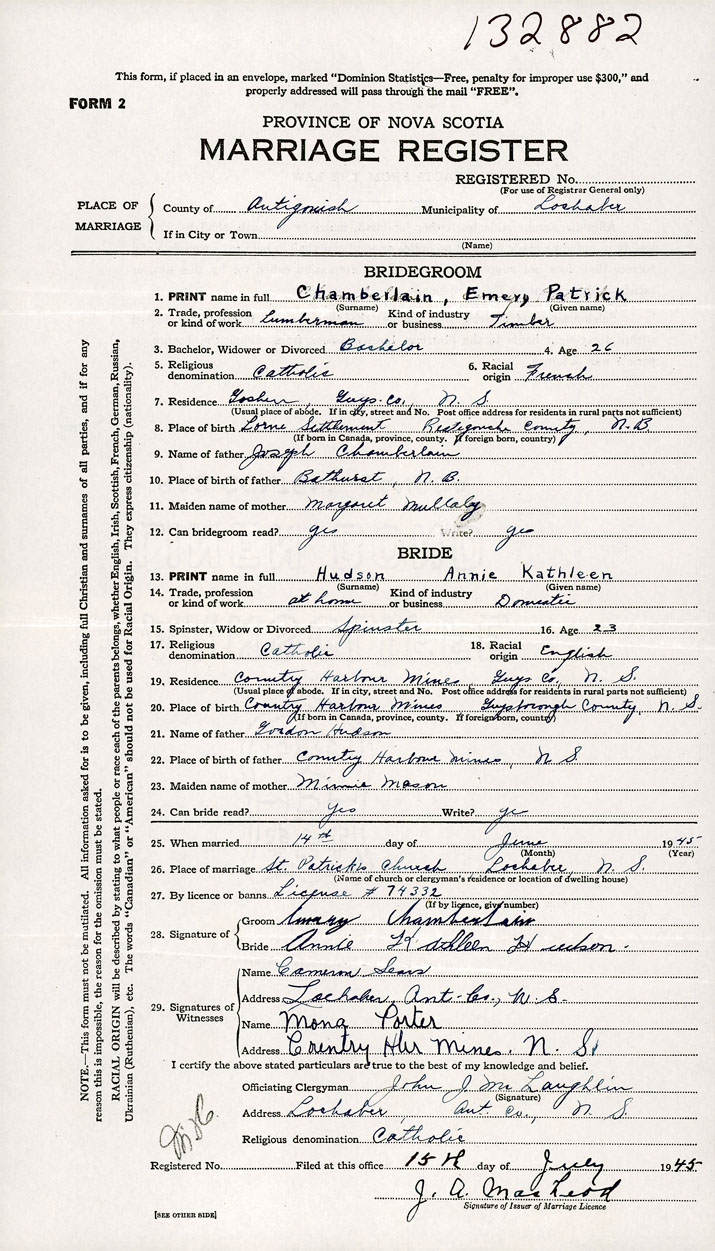 132882
This form, if placed in an envelope, marked "Dominion Statistics—Free, penalty for improper use $300," and
properly addressed will pass through the mail "FREE".
FORM 2
PROVINCE OF NOVA SCOTIA
MARRIAGE REGISTER
REGISTERED No.
(For use of Registrar General only)
PLACE OF MARRIAGE
County of Antigonish Municipality of Lochaber
If in City or Town
(Name)
BRIDEGROOM
1. PRINT name in full Chamberlain, Emery Patrick
(Surname) (Given name)
2. Trade, profession or kind of work Lumberman Kind of industry or business Timber
3. Bachelor, Widower or Divorced Bachelor 4. Age 26
5. Religious denomination Catholic 6. Racial origin French
7. Residence Goshen, Guys. Co., N. S.
(Usual place of abode. If in city, street and No. Post office address for residents in rural parts not sufficient)
8. Place of birth Lorne Settlement Restigouche County, N.B.
(If born in Canada, province, county. If foreign born, country)
9. Name of father Joseph Chamberlain
10. Place of birth of father Bathurst, N. B.
11. Maiden name of mother Margaret Mullaly
12. Can bridegroom read? yes Write? yes
BRIDE
13. PRINT name in full Hudson Annie Kathleen
(Surname) (Given name)
14. Trade, profession or kind of work at home Kind of industry or business Domestic
15. Spinster, Widow or Divorced Spinster 16. Age 23
17. Religious denomination Catholic 18. Racial origin English
19. Residence Country Harbour Mines, Guys Co, N. S.
(Usual place of abode. If in city, street and No. Post office address for residents in rural parts not sufficient)
20. Place of birth Country Harbour Mines Guysborough County, N. S.
(If born in Canada, province, county. If foreign born, country)
21. Name of father Gordon Hudson
22. Place of birth of father Country Harbour Mines, N S.
23. Maiden name of mother Minnie Mason
24. Can bride read? yes Write? yes
25. When married 14th day of June 1945
(Month) (Year)
26. Place of marriage St. Patrick's Church Lochaber, N. S.
(Name of church or clergyman's residence or location of dwelling house)
27. By licence or banns License # 74332
(If by licence, give number)
28. Signature of
Groom Emery Chamberlain
Bride Annie Kathleen Hudson.
29. Signatures of Witnesses
Name Cameron Sears
Address Lochaber, Ant. Co., N. S.
Name Mona Porter
Address Country Hbr Mines. N. S.
I certify the above stated particulars are true to the best of my knowledge and belief.
Officiating Clergyman John J. McLaughlin
(Signature)
Address Lochaber, Ant Co., N. S.
Religious denomination Catholic
Registered No. Filed at this office 15th day of July 1945
J. A. MacLeod
Signature of Issuer of Marriage Licence
[SEE OTHER SIDE]
NOTE.—This form must not be mutilated. All information asked for is to be given, including full Christian and surnames of all parties, and if for any
reason this is impossible, the reason for the omission must be stated.
RACIAL ORIGIN will be described by stating to what people or race each of the parents belongs, whether English, Irish, Scottish, French, German, Russian,
Ukrainian (Ruthenian), etc. The words "Canadian" or "American" should not be used for Racial Origin. They express citizenship (nationality).